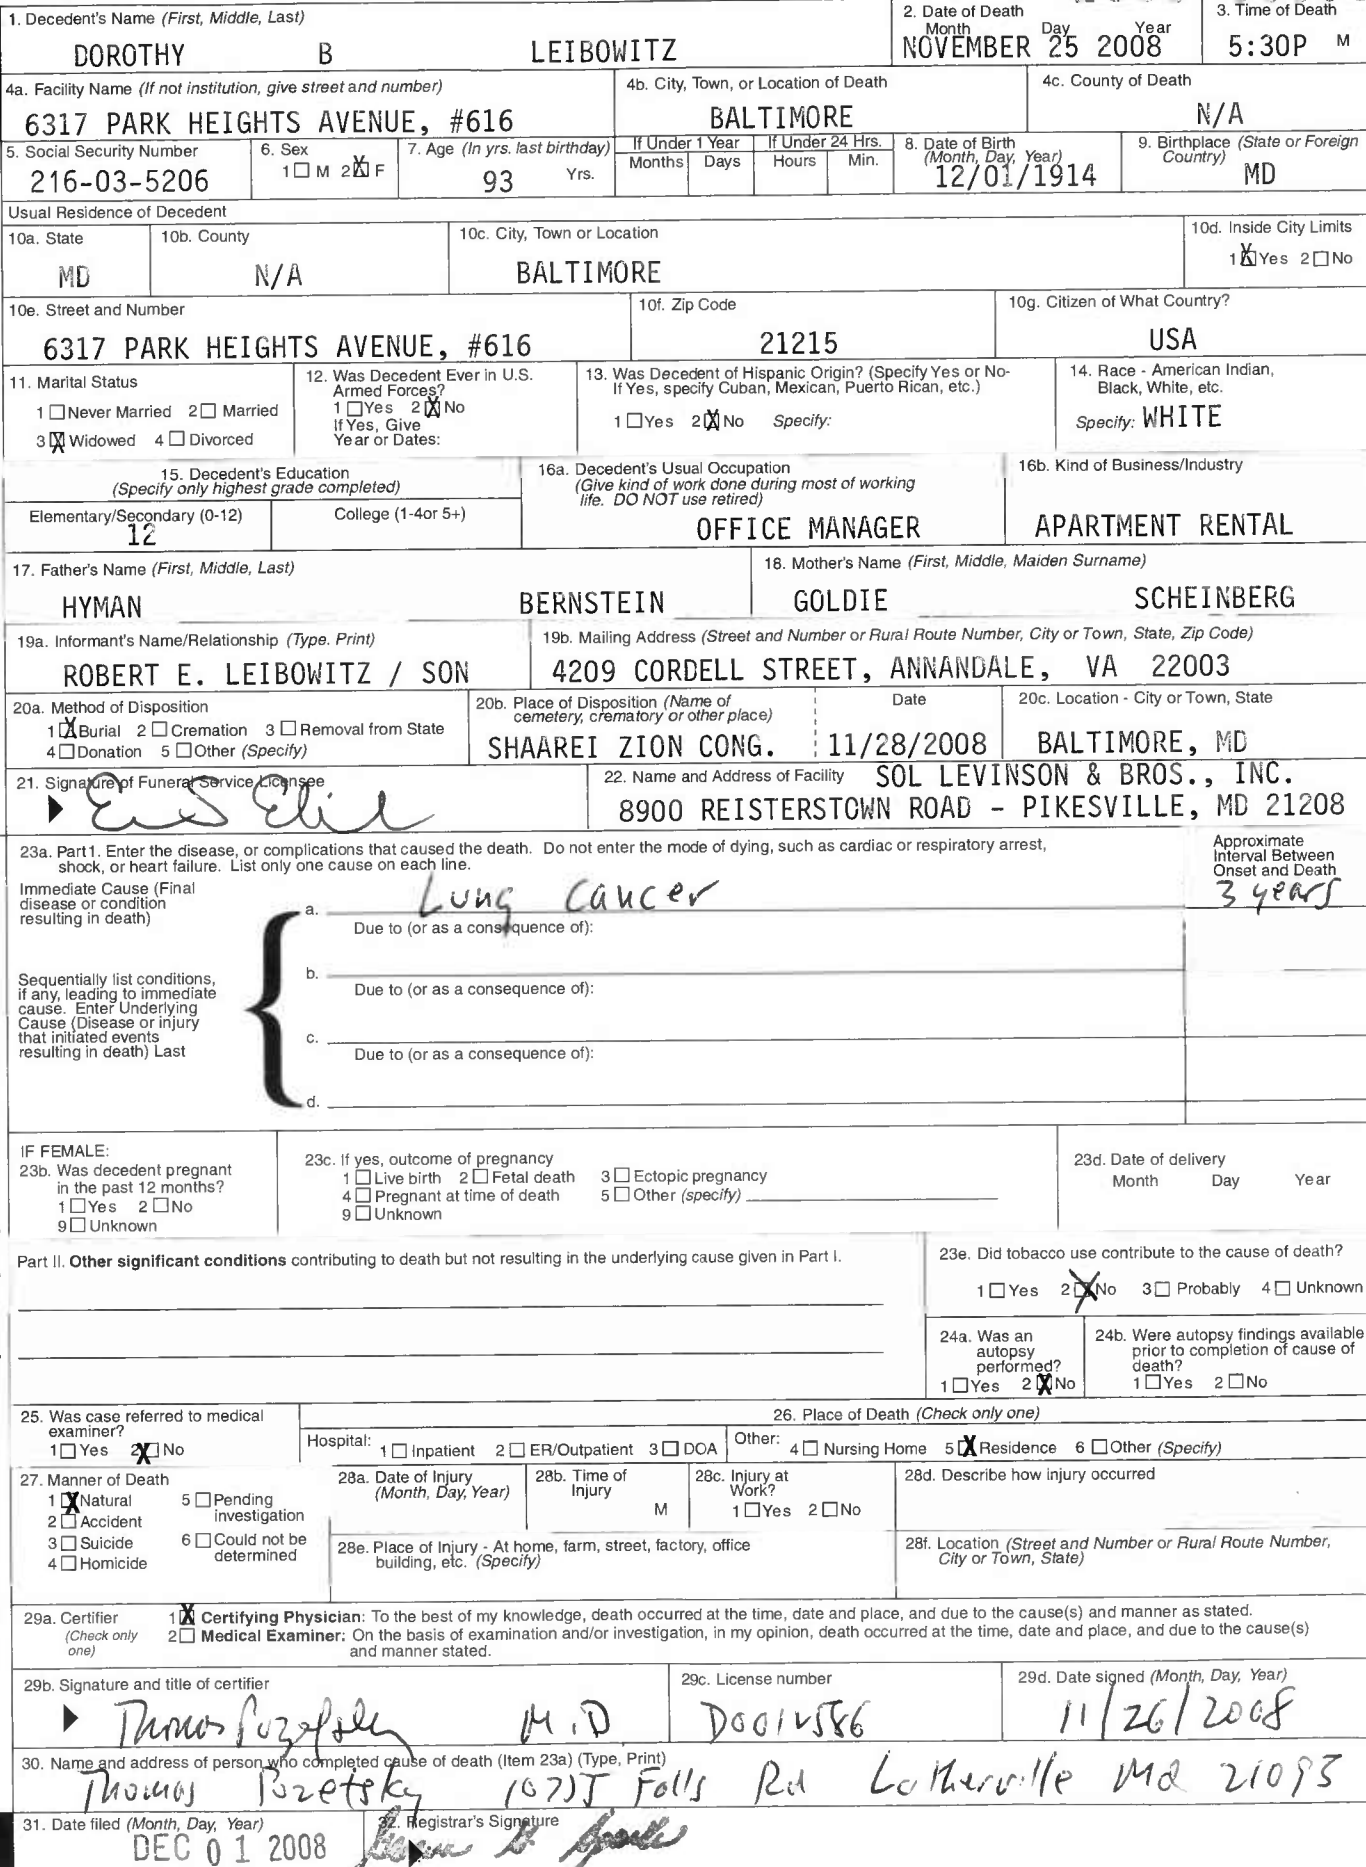 1. Decedent's Name (First, Middle, Last)
DOROTHY B LEIBOWITZ
2. Date of Death
Month Day Year
NOVEMBER 25 2008
3. Time of Death
5:30P M
4a. Facility Name (If not institution, give street and number)
6317 PARK HEIGHTS AVENUE, #616
4b. City, Town, or Location of Death
BALTIMORE
4c. County of Death
N/A
5. Social Security Number
216-03-5206
6. Sex
1☐ M 2☒ F
7. Age (In yrs. last birthday)
93 Yrs.
If Under 1 Year
Months Days
If Under 24 Hrs.
Hours Min.
8. Date of Birth
(Month, Day, Year)
12/01/1914
9. Birthplace (State or Foreign
Country)
MD
Usual Residence of Decedent
10a. State
MD
10b. County
N/A
10c. City, Town or Location
BALTIMORE
10d. Inside City Limits
1☒Yes 2☐No
10e. Street and Number
6317 PARK HEIGHTS AVENUE, #616
10f. Zip Code
21215
10g. Citizen of What Country?
USA
11. Marital Status
1☐Never Married 2☐ Married
3☒Widowed 4☐ Divorced
12. Was Decedent Ever in U.S.
Armed Forces?
1☐Yes 2☒No
If Yes, Give
Year or Dates:
13. Was Decedent of Hispanic Origin? (Specify Yes or No-
If Yes, specify Cuban, Mexican, Puerto Rican, etc.)
1☐Yes 2☒No Specify:
14. Race - American Indian,
Black, White, etc.
Specify: WHITE
15. Decedent's Education
(Specify only highest grade completed)
Elementary/Secondary (0-12)
12
College (1-4or 5+)
16a. Decedent's Usual Occupation
(Give kind of work done during most of working
life. DO NOT use retired)
OFFICE MANAGER
16b. Kind of Business/Industry
APARTMENT RENTAL
17. Father's Name (First, Middle, Last)
HYMAN BERNSTEIN
18. Mother's Name (First, Middle, Maiden Surname)
GOLDIE SCHEINBERG
19a. Informant's Name/Relationship (Type. Print)
ROBERT E. LEIBOWITZ / SON
19b. Mailing Address (Street and Number or Rural Route Number, City or Town, State, Zip Code)
4209 CORDELL STREET, ANNANDALE, VA 22003
20a. Method of Disposition
1☒Burial 2☐Cremation 3☐Removal from State
4☐Donation 5☐Other (Specify)
20b. Place of Disposition (Name of
cemetery, crematory or other place)
SHAAREI ZION CONG.
Date
11/28/2008
20c. Location - City or Town, State
BALTIMORE, MD
21. Signature of Funeral Service Licensee
22. Name and Address of Facility SOL LEVINSON & BROS., INC.
8900 REISTERSTOWN ROAD - PIKESVILLE, MD 21208
23a. Part1. Enter the disease, or complications that caused the death. Do not enter the mode of dying, such as cardiac or respiratory arrest,
shock, or heart failure. List only one cause on each line.
Approximate
Interval Between
Onset and Death
Immediate Cause (Final
disease or condition
resulting in death)
a. Lung Cancer
3 years
Due to (or as a consequence of):
Sequentially list conditions,
if any, leading to immediate
cause. Enter Underlying
Cause (Disease or injury
that initiated events
resulting in death) Last
b.
Due to (or as a consequence of):
c.
Due to (or as a consequence of):
d.
IF FEMALE:
23b. Was decedent pregnant
in the past 12 months?
1☐Yes 2☐No
9☐Unknown
23c. If yes, outcome of pregnancy
1☐Live birth 2☐Fetal death 3☐Ectopic pregnancy
4☐Pregnant at time of death 5☐Other (specify)
9☐Unknown
23d. Date of delivery
Month Day Year
Part II. Other significant conditions contributing to death but not resulting in the underlying cause given in Part I.
23e. Did tobacco use contribute to the cause of death?
1☐Yes 2☒No 3☐Probably 4☐Unknown
24a. Was an
autopsy
performed?
1☐Yes 2☒No
24b. Were autopsy findings available
prior to completion of cause of
death?
1☐Yes 2☐No
25. Was case referred to medical
examiner?
1☐Yes 2☒No
26. Place of Death (Check only one)
Hospital: 1☐Inpatient 2☐ER/Outpatient 3☐DOA
Other: 4☐Nursing Home 5☒Residence 6☐Other (Specify)
27. Manner of Death
1☒Natural 5☐Pending
investigation
2☐Accident
3☐Suicide 6☐Could not be
determined
4☐Homicide
28a. Date of Injury
(Month, Day, Year)
28b. Time of
Injury
M
28c. Injury at
Work?
1☐Yes 2☐No
28d. Describe how injury occurred
28e. Place of Injury - At home, farm, street, factory, office
building, etc. (Specify)
28f. Location (Street and Number or Rural Route Number,
City or Town, State)
29a. Certifier
(Check only
one)
1☒ Certifying Physician: To the best of my knowledge, death occurred at the time, date and place, and due to the cause(s) and manner as stated.
2☐ Medical Examiner: On the basis of examination and/or investigation, in my opinion, death occurred at the time, date and place, and due to the cause(s)
and manner stated.
29b. Signature and title of certifier
Thomas Pozefsky M.D
29c. License number
29d. Date signed (Month, Day, Year)
11/26/2008
30. Name and address of person who completed cause of death (Item 23a) (Type, Print)
Thomas Pozefsky Falls Rd Lutherville Md 21093
31. Date filed (Month, Day, Year)
DEC 01 2008
32. Registrar's Signature